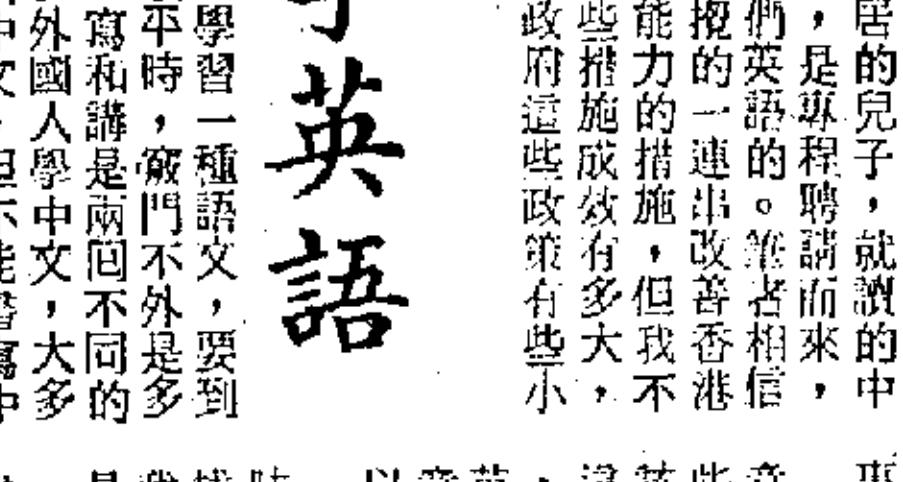 居的兒子，就讀的中
，是專程聘請而來，
們英語的。筆者相信
攬的一連串改善香港
能力的措施，但我不
些措施成效有多大，
政府這些政策有些小
英語
學習一種語文，要到
平時，竅門不外是多
寫和講是兩回不同的
外國人學中文，大多
中文，但不能書寫中